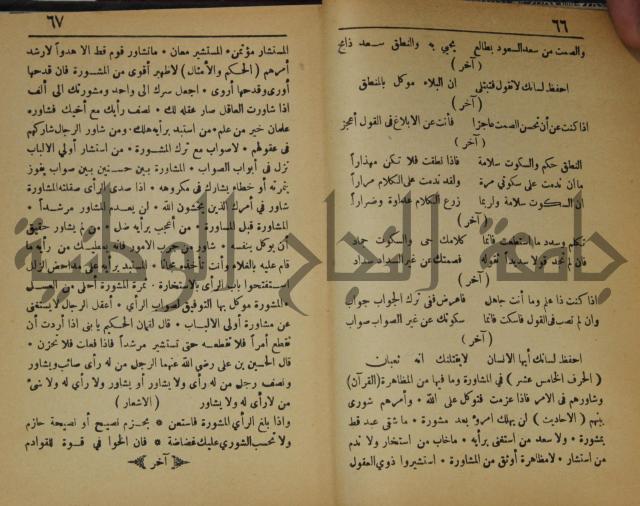 ٦٦
والصمت من سعد السعود بطالع يحيي به والنطق سعد ذابح
( آخر )
احفظ لسانك لا تقول فتبتلى ان البلاء موكل بالمنطق
( آخر )
اذا كنت عن أن تحسن الصمت عاجزا فأنت عن الابلاغ في القول أعجز
( آخر )
النطق حكم والسكوت سلامة فاذا نطقت فلا تكن مهذارا
ما ان ندمت على سكوتي مرة ولقد ندمت على الكلام مرارا
ان السكوت سلامة ولربما زرع الكلام عداوة وضرارا
( آخر )
تكلم وسدد ما استطعت فانما كلامك حى والسكوت جماد
فان لم تجد قولا سديدا تقوله فصمتك عن غير السداد سداد
( آخر )
اذا كنت ذا علم وما أنت جاهل فاعرض ففي ترك الجواب جواب
وان لم تصب في القول فاسكت فانما سكوتك عن غير الصواب صواب
( آخر )
احفظ لسانك أيها الانسان لا يقتلنك انه ثعبان
( الحرف الخامس عشر ) في المشاورة وما فيها من المظاهرة (القرآن)
وشاورهم في الامر فاذا عزمت فتوكل على الله * وأمرهم شورى
بينهم ( الاحاديث ) لن يهلك امرؤ بعد مشورة * ما شقى عبد قط
بمشورة * ولا سعد من استغنى برأيه * ماخاب من استخار ولا ندم
من استشار * لا مظاهرة أوثق من المشاورة * استشيروا ذوي العقول
٦٧
المستشار مؤتمن * المستشير معان * ماتشاور قوم قط الا هدوا لارشد
أمرهم ( الحكم والأمثال ) لاظهير أقوى من المشورة فان قدحها
أورى وقدحها أروى * اجعل سرك الى واحد ومشورتك الى ألف
اذا شاورت العاقل صار عقله لك * نصف رأيك مع أخيك فشاوره
علمان خير من علم * من استبد برأيه هلك * ومن شاور الرجال شاركهم
في عقولهم * لاصواب مع ترك المشورة * من استشار أولي الالباب
نزل في أبواب الصواب * المشاورة بين حسنين بين صواب يفوز
بثمرته أو خطاء يشارك في مكروهه * اذا صدى الرأى صقلته المشاورة
شاور في أمرك الذين يخشون الله * لن يعدم المشاور مرشداً *
المشاورة قبل المساورة * من أعجب برأيه ضل * من لم يشاور حقيق
أن يوكل بنفسه * شاور من جرب الامور فانه يعطيك من رأيه ما
قام عليه بالغلاء وأنت تأخذه مجانا * المستبد برأيه على مداحض الزلل
استفتحوا باب الرأى بالاستخارة * ثمرة المشورة أحلى من العسل
المشورة موكل بها التوفيق لصواب الرأي * أعقل الرجال لا يستغنى
عن مشاورة أولى الالباب * قال لقمان الحكيم يا بنى اذا أردت أن
تقطع أمراً فلا تقطعه حتى تستشير مرشداً فاذا فعلت فلا تحزن *
قال الحسين بن على رضي الله عنهما الرجل من له رأى صائب ويشاور
ونصف رجل من له رأى ولا يشاور أو يشاور ولا رأي له ولا شئ
من لا رأى له ولا يشاور ( الاشعار )
واذا بلغ الرأي المشورة فاستعن * بحزم نصيح أو نصيحة حازم
ولا تحسب الشورى عليك غضاضة * فان الخوا في قوة للقوادم
آخر
جامعة النجاح الوطنية